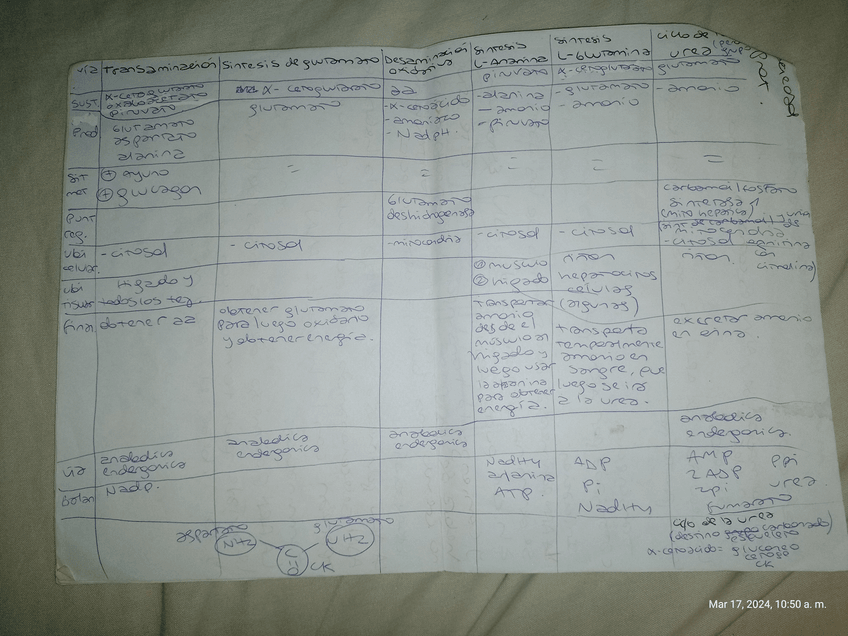 via Transaminación Sintesis de glutamato Desaminación oxidativa Sintesis L-Alanina Sintesis L-Glutamina ciclo de la urea
Sust. α-cetoglutarato
oxalacetato
piruvato
α-cetoglutarato
aa
piruvato
α-cetoglutarato
glutamato
Prod
Glutamato
aspartato
alanina
glutamato
-α-cetoácido
-amoniaco
-NadpH.
-alanina
-amonio
-piruvato
-glutamato
-amonio
-amonio
Sit
met
+ ayuno
+ glucagon
=
=
=
=
=
Punt
reg.
Glutamato
deshidrogenasa
carbamoil fosfato
sintetasa 1
(mito hepatica)
ubi
celular.
-citosol
-citosol
-mitocondria
-citosol
-citosol
mitocondria
-citosol
ubi
tisular
higado y
todos los tej.
① musculo
② higado
riñon
hepatocitos
celulas
(algunas)
riñon.
final
obtener aa
obtener glutamato
para luego oxidarlo
y obtener energia.
transportar
amonio
desde el
músculo al
higado y
luego usar
la alanina
para obtener
energia.
transporta
temporalmente
amonio en
sangre, que
luego se ira
a la urea.
excretar amonio
en orina.
via
anabolica
endergonica
anabolica
endergonica
anabolica
endergonica
anabolica
endergonica.
balan
Nadp.
NadH+
alanina
ATP.
ADP
Pi
NadH+
AMP PPi
2ADP
2Pi urea.
fumarato
aspartato glutamato
NH2 NH2
C
CK
c/o de la urea
(destino esqueleto carbonado)
α-cetoacido= gluconeo
cetoge
CK
Mar 17, 2024, 10:50 a. m.